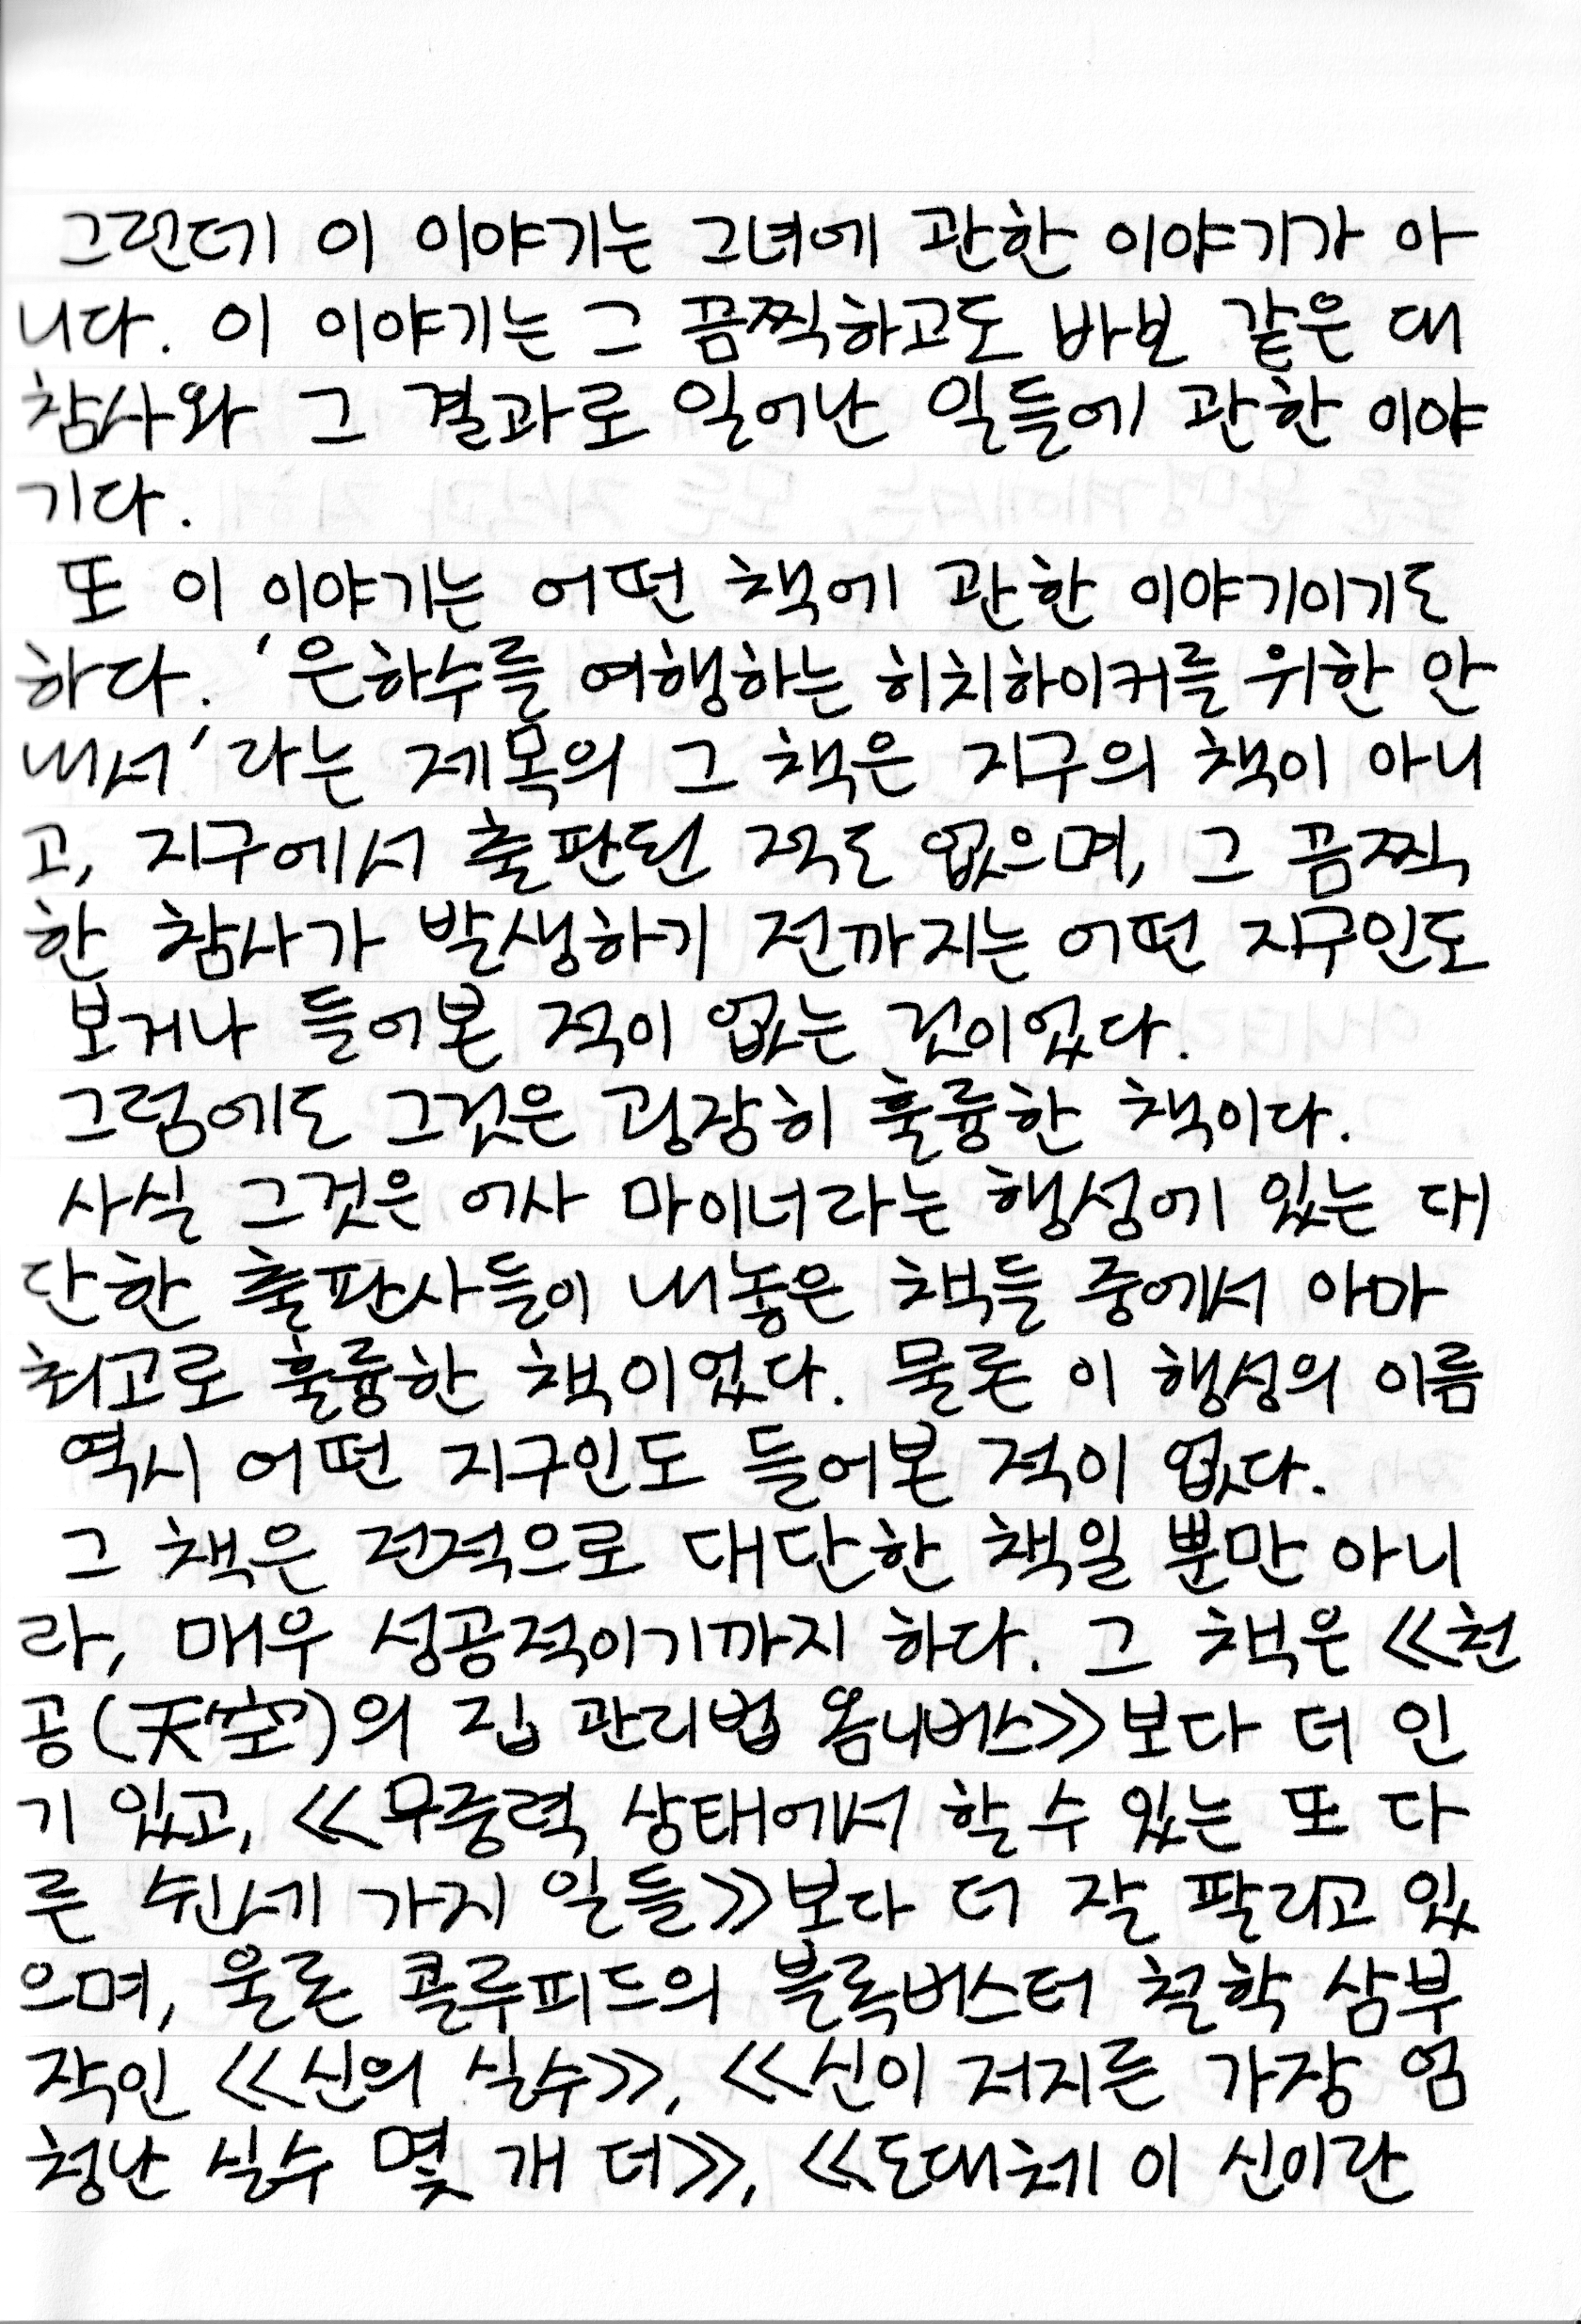 그런데 이 이야기는 그녀에 관한 이야기가 아
니다. 이 이야기는 그 끔찍하고도 바보 같은 대
참사와 그 결과로 일어난 일들에 관한 이야
기다.
또 이 이야기는 어떤 책에 관한 이야기이기도
하다. '은하수를 여행하는 히치하이커를 위한 안
내서'라는 제목의 그 책은 지구의 책이 아니
고, 지구에서 출판된 적도 없으며, 그 끔찍
한 참사가 발생하기 전까지는 어떤 지구인도
보거나 들어본 적이 없는 것이었다.
그럼에도 그것은 굉장히 훌륭한 책이다.
사실 그것은 어사 마이너라는 행성에 있는 대
단한 출판사들이 내놓은 책들 중에서 아마
최고로 훌륭한 책이었다. 물론 이 행성의 이름
역시 어떤 지구인도 들어본 적이 없다.
그 책은 전적으로 대단한 책일 뿐만 아니
라, 매우 성공적이기까지 하다. 그 책은 ≪천
공(天空)의 집 관리법 옴니버스≫보다 더 인
기 있고, ≪무중력 상태에서 할 수 있는 또 다
른 쉰세 가지 일들≫보다 더 잘 팔리고 있
으며, 울론 콜루피드의 블록버스터 철학 삼부
작인 ≪신의 실수≫, ≪신이 저지른 가장 엄
청난 실수 몇 개 더≫, ≪도대체 이 신이란